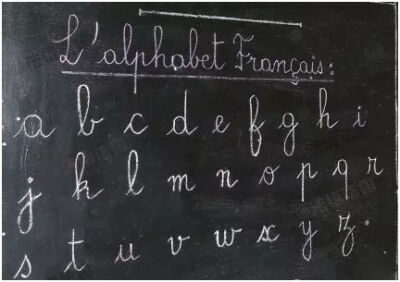 L'alphabet Français:
a b c d e f g h i
j k l m n o p q r
s t u v w x y z